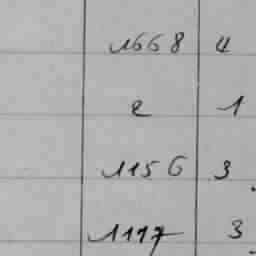 1668 4
2 1
1156 3
1117 3